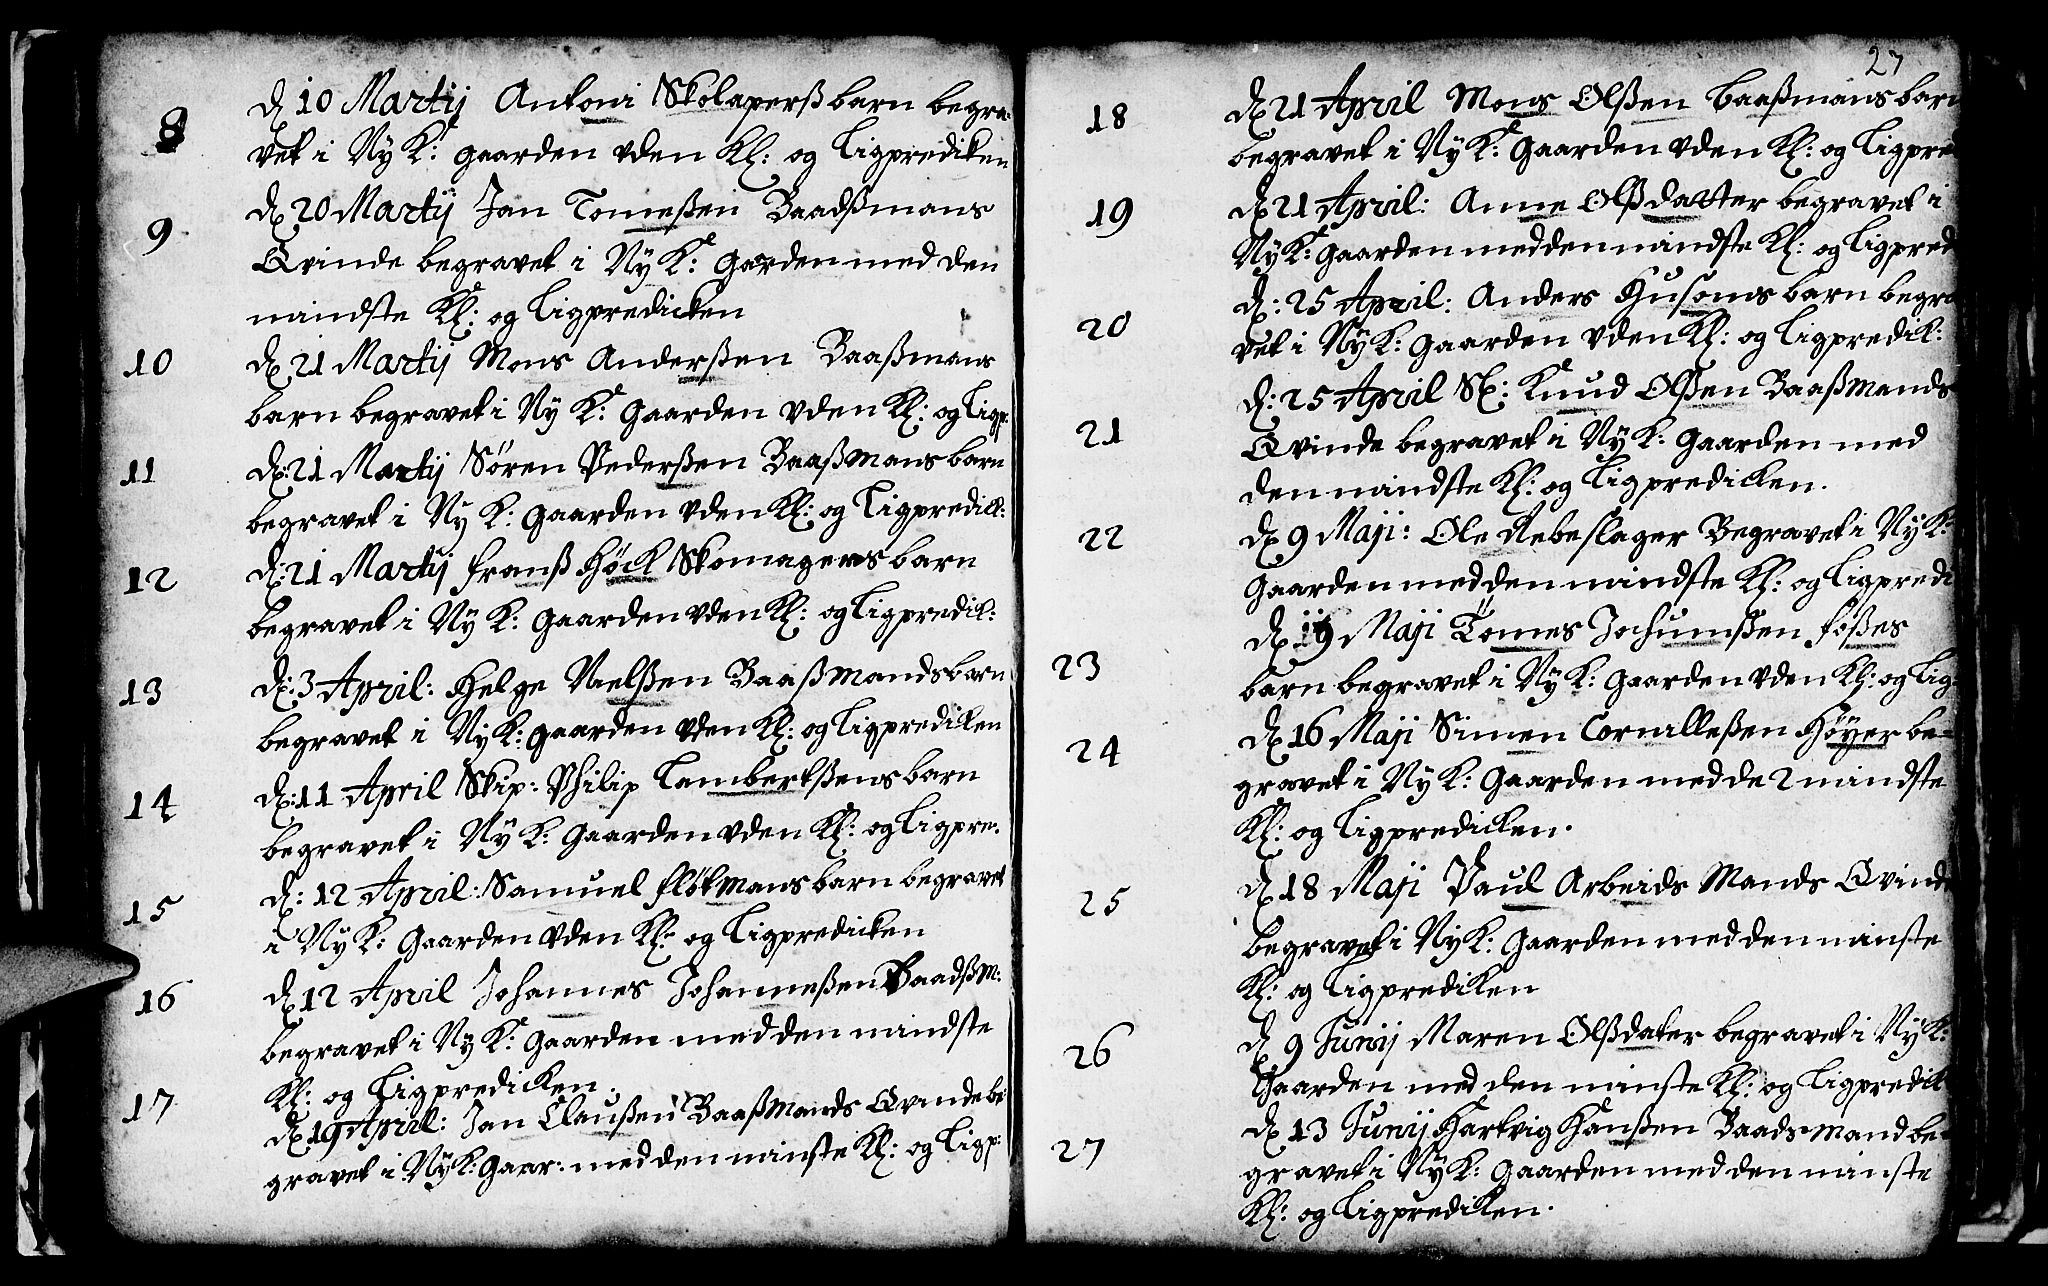 8
d 10 Martij Antoni Skolaperß barn begra-
vet i Ny K: gaarden vden Kl: og Ligprediken
9
d 20 Martij Jan Tomeßen Baadßmans
Qvinde begravet i Ny K: Gaarden med den
mindste Kl: og Ligpredicken
10
d 21 Martij Mons Anderßen Baaßmans
barn begravet i Ny K: Gaarden vden Kl: og Ligp:
11
d: 21 Martij Søren Pederßen Baaßmans barn
begravet i Ny K: Gaarden vden Kl: og Ligpredick:
12
d: 21 Martij franß Høck Skomagers barn
begravet i Ny K: Gaarden vden Kl: og Ligpredik:
13
d: 3 April: Helge Nielßen Baaßmands barn
begravet i Ny K: Gaarden vden Kl: og Ligpredicken
14
d: 11 April Skip: Philip Lambertßens barn
begravet i Ny K: Gaarden vden Kl: og Ligpre:
15
d: 12 April: Samuel fløtmans barn begravet
i Ny K: Gaarden vden Kl: og Ligpredicken
16
d 12 April Johannes Johanneßen Baadßm:
begravet i Ny K: Gaarden med den mindste
Kl: og Ligpredicken.
17
d 19 April: Jan Claußen Baaßmands Qvinde be
gravet i Ny K: Gaar: med den minste Kl: og Ligp:
27
18
d 21 April Mons Olßen baaßmans barn
begravet i Ny K: Gaarden vden Kl: og Ligpred
19
d 21 April: Anne Olßdatter begravet i
Ny K: Gaarden med den mindste Kl: og Ligpred
20
d: 25 April: Anders Husoms barn begra
vet i Ny K: Gaarden vden Kl: og Ligpredik:
21
d: 25 April Sl: Knud Olßen Baaßmands
Qvinde begravet i Ny K: Gaarden med
den mindste Kl: og Ligpredicken.
22
d 9 Maji: Ole Rebeslager Begravet i Ny K:
Gaarden med den mindste Kl: og Ligpredi
23
d 19 Maji Tomes Jochumßen foßes
barn begravet i Ny K: Gaarden vden Kl: og Lig-
24
d 16 Maji Simen Cornilleßen Høyer be-
gravet i Ny K: Gaarden med de 2 mindste
Kl: og Ligpredicken.
25
d 18 Maji Paul Arbeids Mands Qvinde
begravet i Ny K: Gaarden med den minste
Kl: og Ligpredicken
26
d 9 Junij Maren Olßdater begravet i Ny K:
Gaarden med den minste Kl: og Ligpredick
27
d 13 Junij Hartvig Hanßen Baadsmand be-
gravet i Ny K: Gaarden med den minste
Kl: og Ligpredicken.